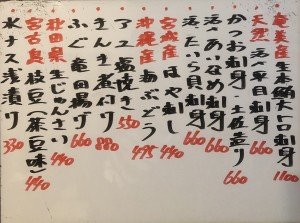 奄美産 生本鮪大トロ刺身 1100
天然 活〆平目刺身 660
かつお刺身 土佐造り 660
活〆あいなめ刺身 660
活たら貝刺身 660
宮城産 ほや刺し 440
沖縄産 海ぶどう 495
アユ塩焼き 550
きんき煮付 880
ふぐ竜田揚げ 660
秋田県 生じゅんさい 440
宮古島 枝豆(茶豆味) 440
水ナス浅漬り 330